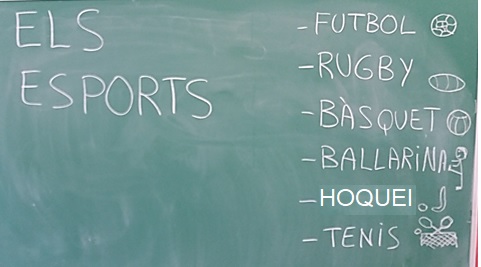 ELS
ESPORTS
- FUTBOL
- RUGBY
- BÀSQUET
- BALLARINA
- HOQUEI
- TENIS